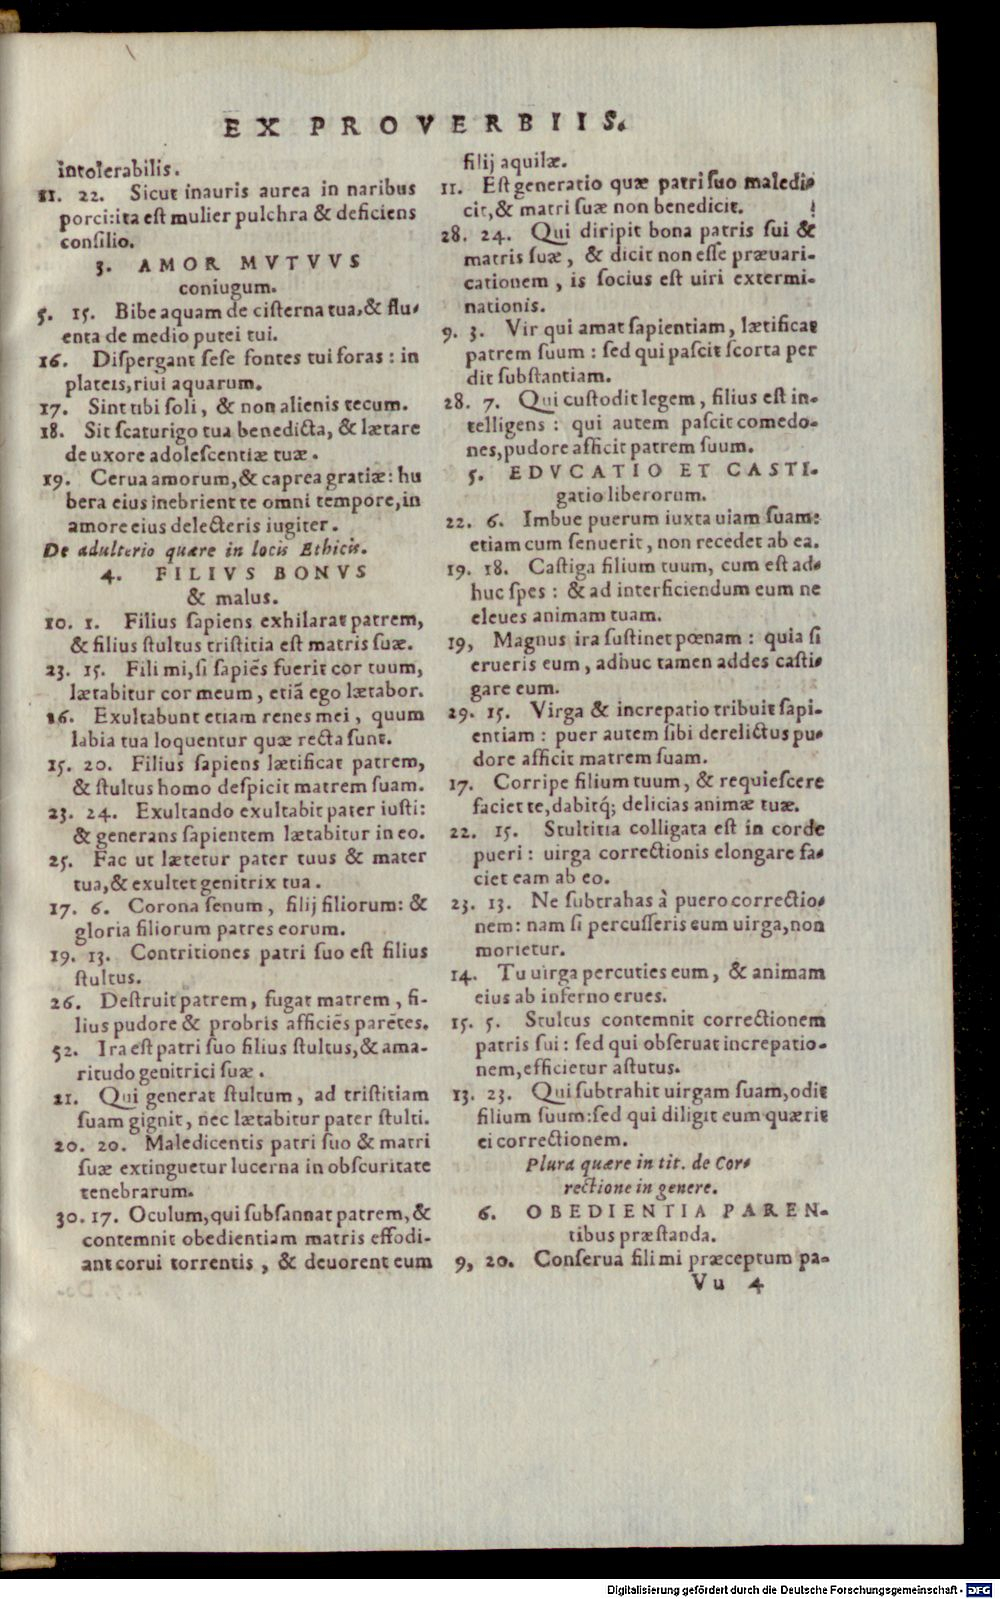 EX PROVERBIIS.
intolerabilis.
11. 22. Sicut inauris aurea in naribus
porci:ita est mulier pulchra & deficiens
consilio.
3. AMOR MVTVVS
coniugum.
5. 15. Bibe aquam de cisterna tua,& flu-
enta de medio putei tui.
16. Dispergant sese fontes tui foras : in
plateis,riui aquarum.
17. Sint tibi soli, & non alienis tecum.
18. Sit scaturigo tua benedicta, & lætare
de uxore adolescentiæ tuæ.
19. Cerua amorum,& caprea gratiæ: hu
bera eius inebrient te omni tempore,in
amore eius delecteris iugiter.
De adulterio quære in locis Ethicis.
4. FILIVS BONVS
& malus.
10. 1. Filius sapiens exhilarat patrem,
& filius stultus tristitia est matris suæ.
23. 15. Fili mi,si sapiẽs fuerit cor tuum,
lætabitur cor meum, etiã ego lætabor.
16. Exultabunt etiam renes mei, quum
labia tua loquentur quæ recta sunt.
15. 20. Filius sapiens lætificat patrem,
& stultus homo despicit matrem suam.
23. 24. Exultando exultabit pater iusti:
& generans sapientem lætabitur in eo.
25. Fac ut lætetur pater tuus & mater
tua,& exultet genitrix tua.
17. 6. Corona senum, filij filiorum: &
gloria filiorum patres eorum.
19. 13. Contritiones patri suo est filius
stultus.
26. Destruit patrem, fugat matrem, fi-
lius pudore & probris afficiẽs parẽtes.
52. Ira est patri suo filius stultus,& ama-
ritudo genitrici suæ.
21. Qui generat stultum, ad tristitiam
suam gignit, nec lætabitur pater stulti.
20. 20. Maledicentis patri suo & matri
suæ extinguetur lucerna in obscuritate
tenebrarum.
30. 17. Oculum,qui subsannat patrem,&
contemnit obedientiam matris effodi-
ant corui torrentis, & deuorent eum
filij aquilæ.
11. Est generatio quæ patri suo maledi-
cit,& matri suæ non benedicit.
28. 24. Qui diripit bona patris sui &
matris suæ, & dicit non esse præuari-
cationem, is socius est uiri extermi-
nationis.
9. 3. Vir qui amat sapientiam, lætificat
patrem suum : sed qui pascit scorta per
dit substantiam.
28. 7. Qui custodit legem, filius est in-
telligens : qui autem pascit comedo-
nes,pudore afficit patrem suum.
5. EDVCATIO ET CASTI-
gatio liberorum.
22. 6. Imbue puerum iuxta uiam suam:
etiam cum senuerit, non recedet ab ea.
19. 18. Castiga filium tuum, cum est ad-
huc spes : & ad interficiendum eum ne
eleues animam tuam.
19, Magnus ira sustinet pœnam : quia si
erueris eum, adhuc tamen addes casti-
gare eum.
29. 15. Virga & increpatio tribuit sapi-
entiam : puer autem sibi derelictus pu-
dore afficit matrem suam.
17. Corripe filium tuum, & requiescere
faciet te,dabitq́; delicias animæ tuæ.
22. 15. Stultitia colligata est in corde
pueri : uirga correctionis elongare fa-
ciet eam ab eo.
23. 13. Ne subtrahas à puero correctio-
nem: nam si percusseris eum uirga,non
morietur.
14. Tu uirga percuties eum, & animam
eius ab inferno erues.
15. 5. Stultus contemnit correctionem
patris sui : sed qui obseruat increpatio-
nem,efficietur astutus.
13. 23. Qui subtrahit uirgam suam,odit
filium suum:sed qui diligit eum quærit
ei correctionem.
Plura quære in tit. de Cor-
rectione in genere.
6. OBEDIENTIA PAREN-
tibus præstanda.
9, 20. Conserua fili mi præceptum pa-
Vu 4
Digitalisierung gefördert durch die Deutsche Forschungsgemeinschaft - DFG